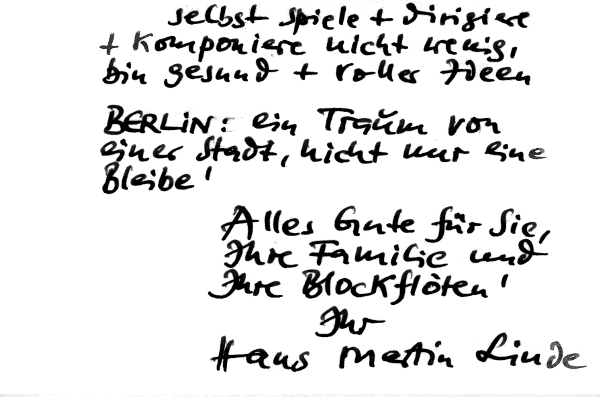 selbst spiele + dirigiere
+ komponiere nicht wenig,
bin gesund + voller Ideen
BERLIN: ein Traum von
einer Stadt, nicht nur eine
Bleibe!
Alles Gute für Sie,
Ihre Familie und
Ihre Blockflöten!
Ihr
Hans Martin Linde